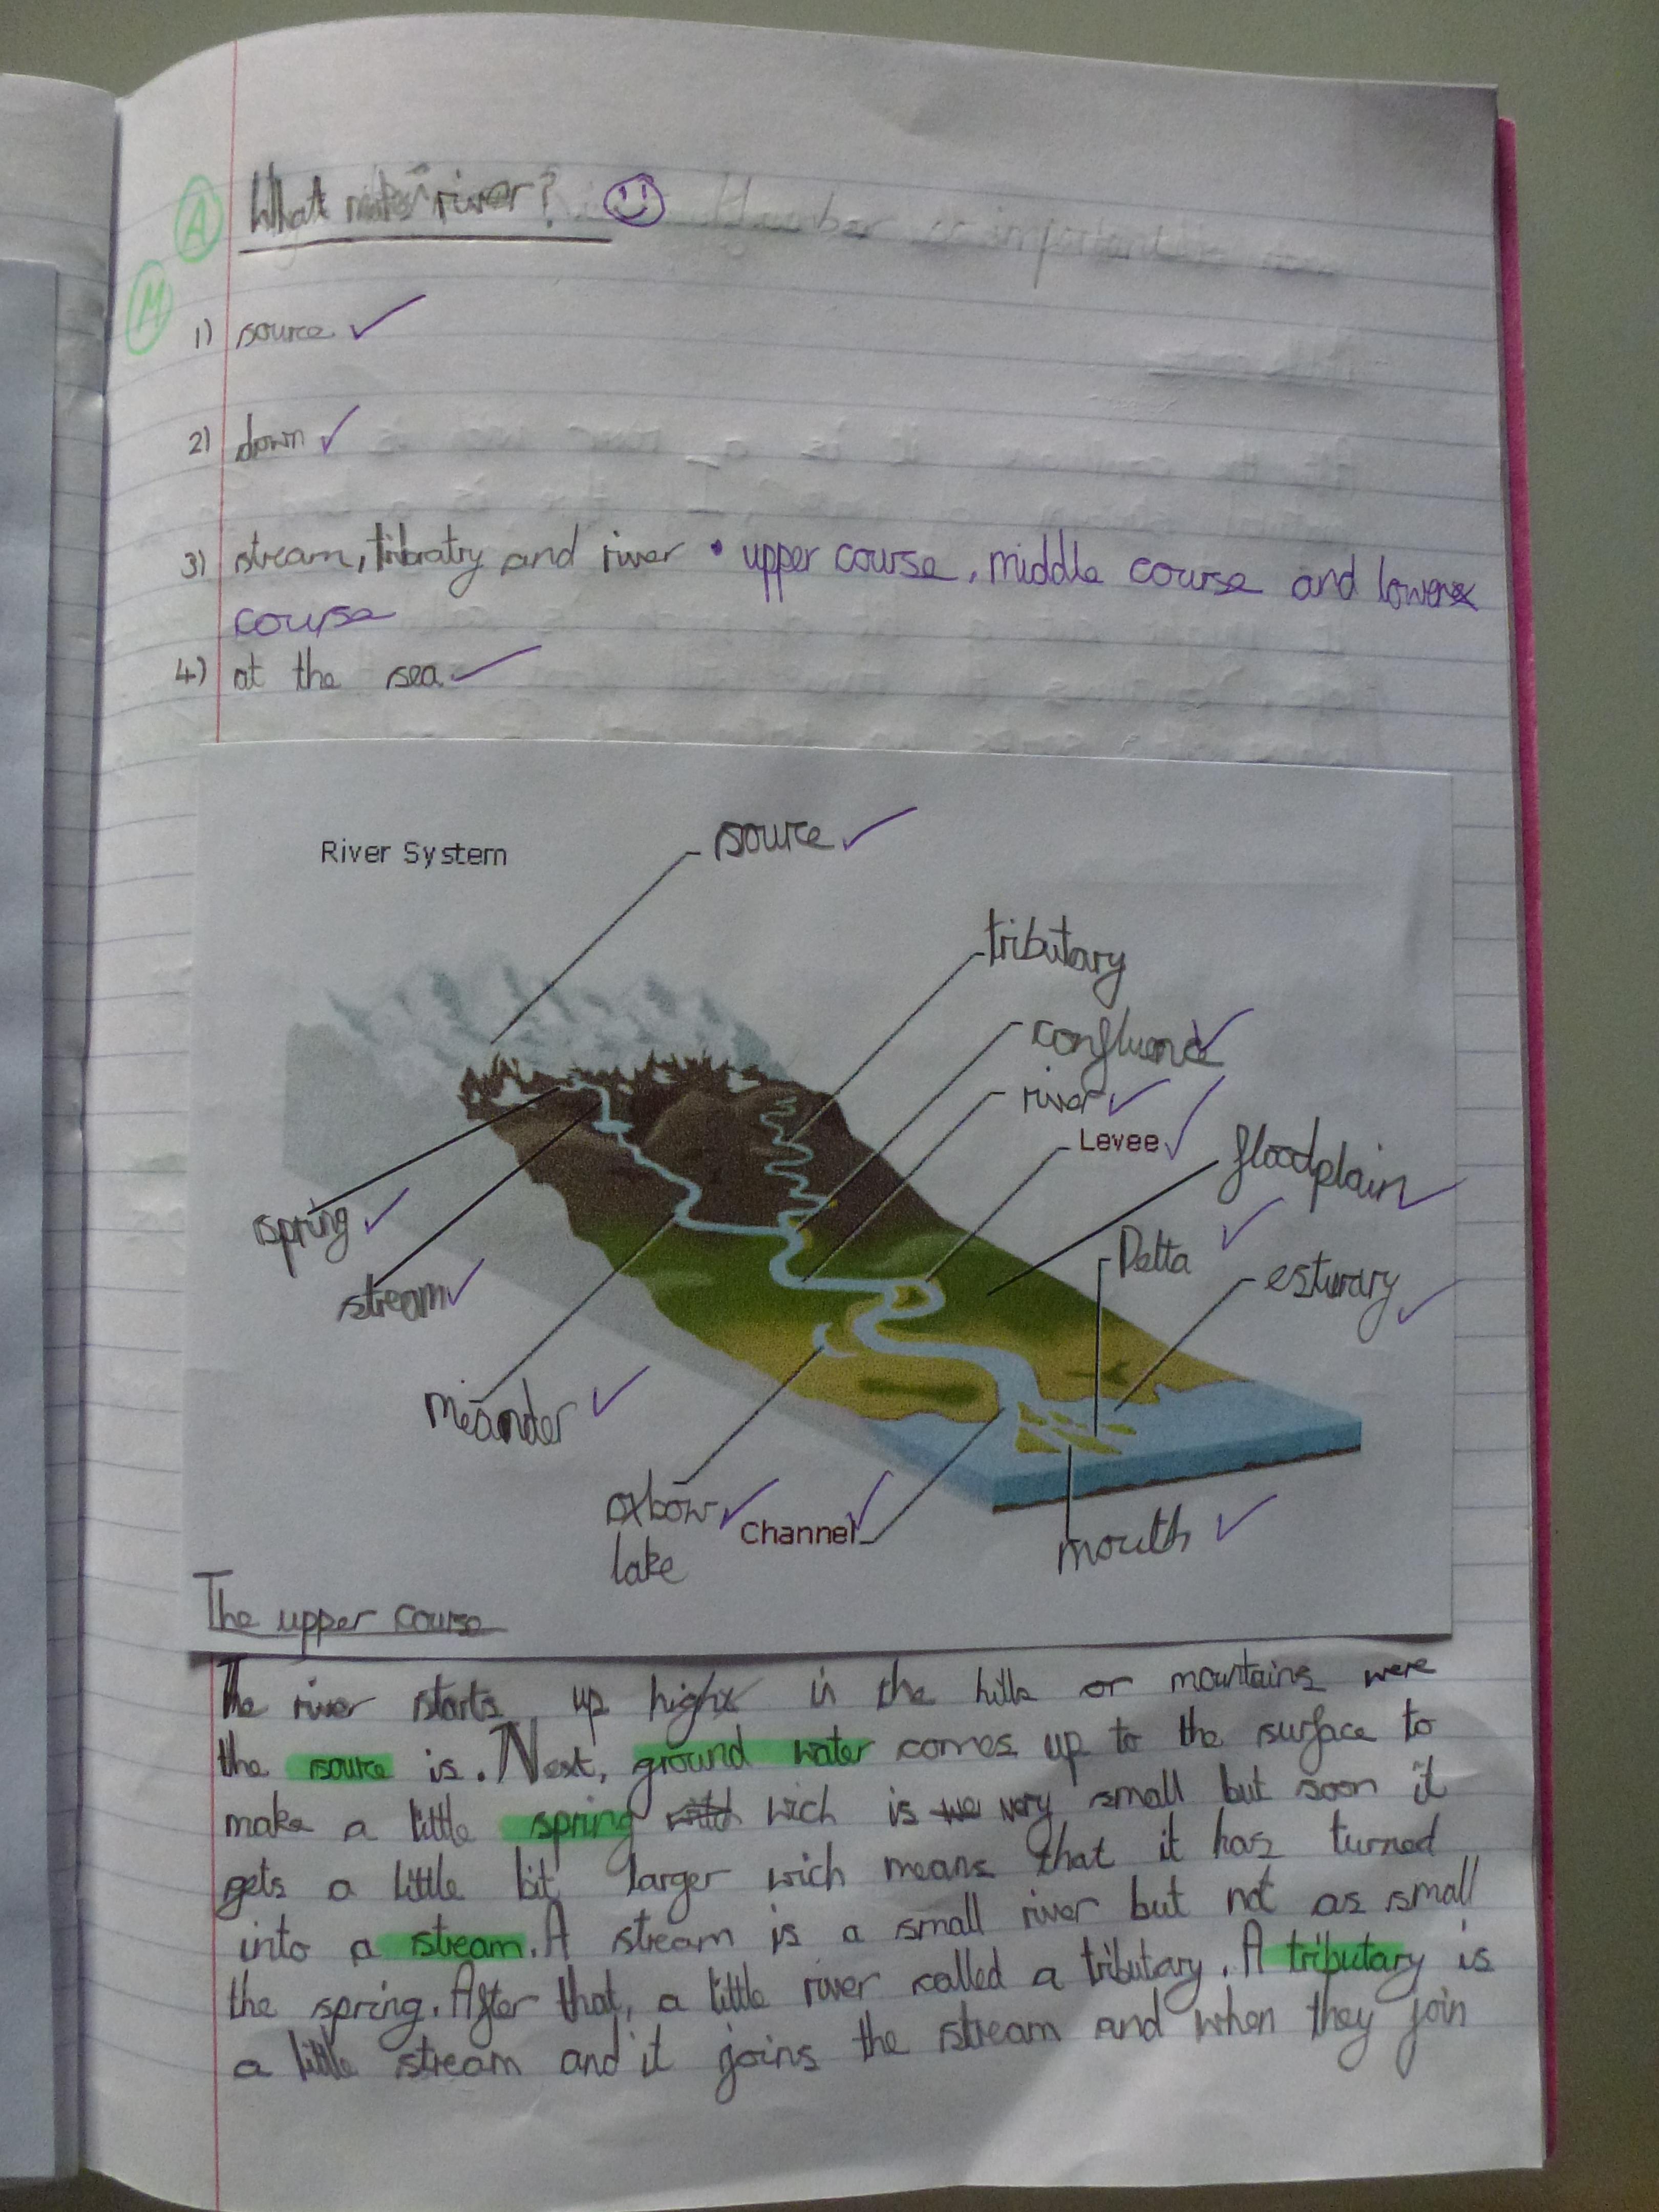 A What river?
M
1) source
2) down
3) stream, tribratry and river • upper course, middle course and lower
course
4) at the sea
River System
source
tributary
confluence
river
Levee
floodplain
Delta
esturary
spring
stream
meander
oxbow
lake
Channel
mouth
The upper course
The river starts up high in the hills or mountains were
the source is. Next, ground water comes up to the surface to
make a little spring wich is very small but soon it
gets a little bit larger wich means that it has turned
into a stream. A stream is a small river but not as small
the spring. After that, a little river called a tributary. A tributary is
a little stream and it joins the stream and when they join